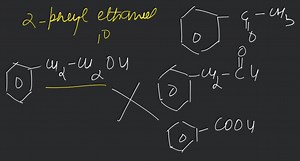 2-pheyl ethanol
1°
CH2-CH2OH
C-CH3
O
O
CH2-C H
COOH